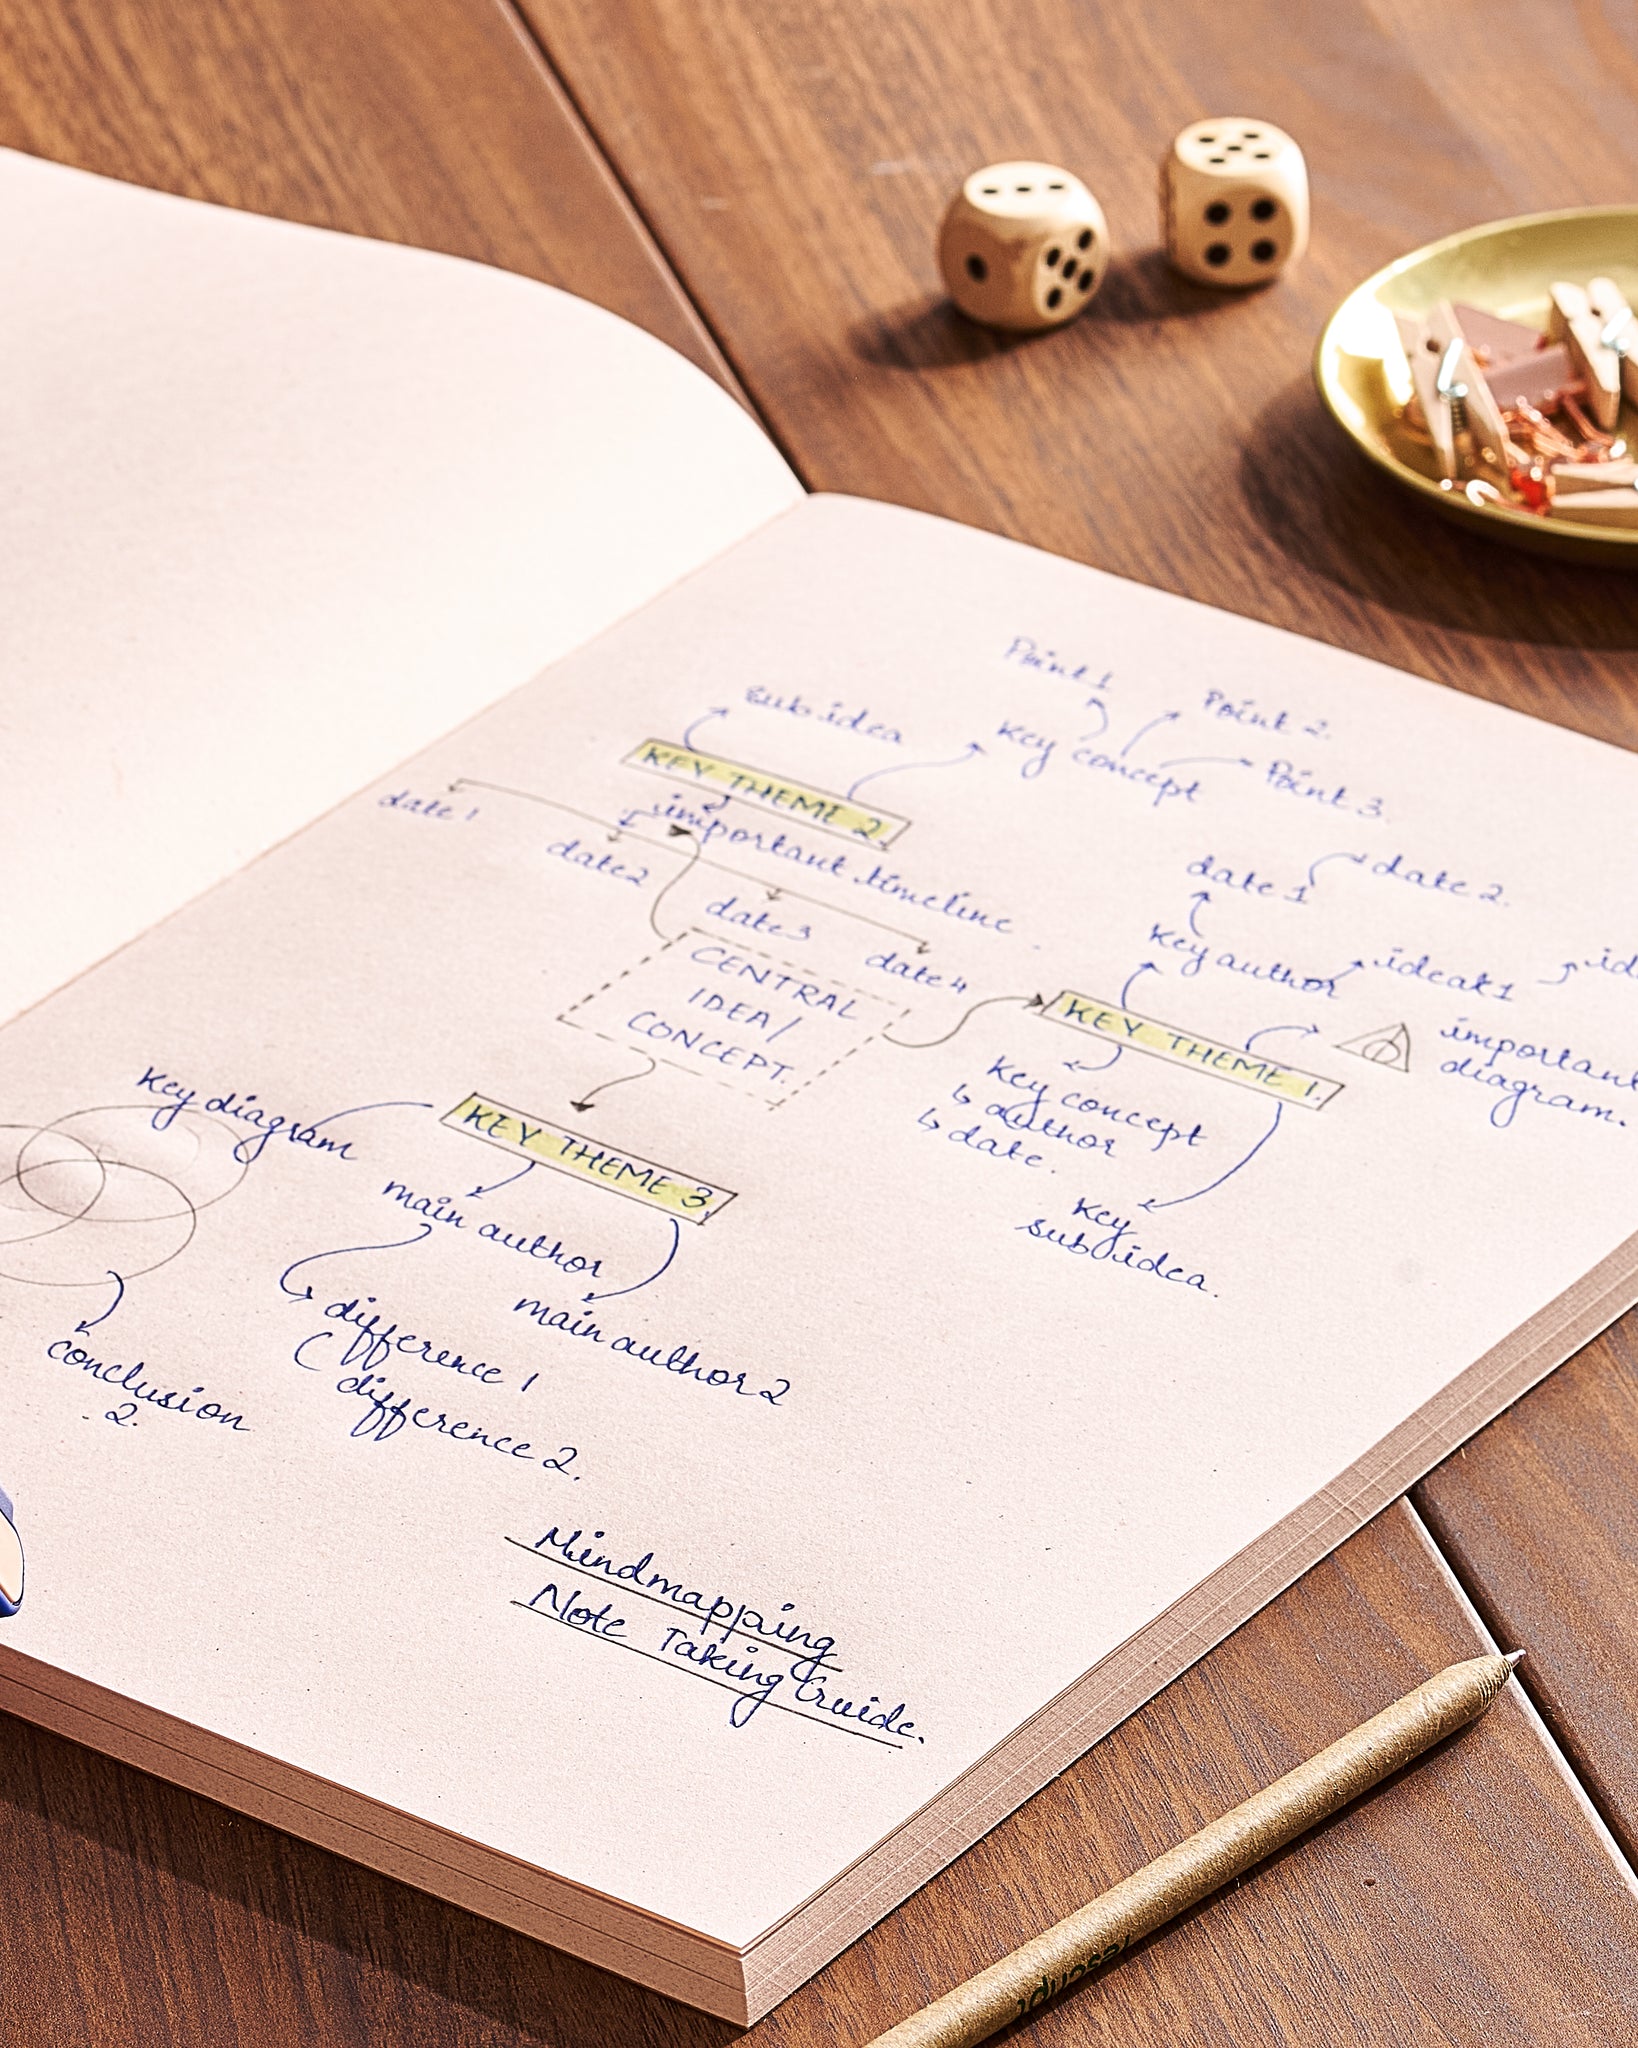 Point 1
Point 2.
sub idea
Key concept
Point 3.
KEY THEME 2.
important timeline.
date 1
date 2
date 3
date 4
date 1
date 2.
Key author
ideat 1
CENTRAL
IDEA/
CONCEPT.
KEY THEME 1.
important
diagram.
Key concept
↳ author
↳ date.
Key
sub idea.
Key diagram
KEY THEME 3.
main author
main author 2
difference 1
difference 2.
conclusion
2.
Mindmapping
Note Taking Guide.